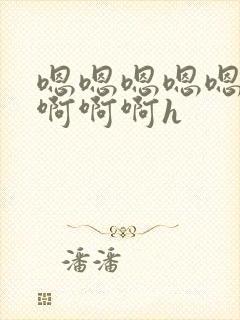 嗯嗯嗯嗯嗯
啊啊啊h
潘潘